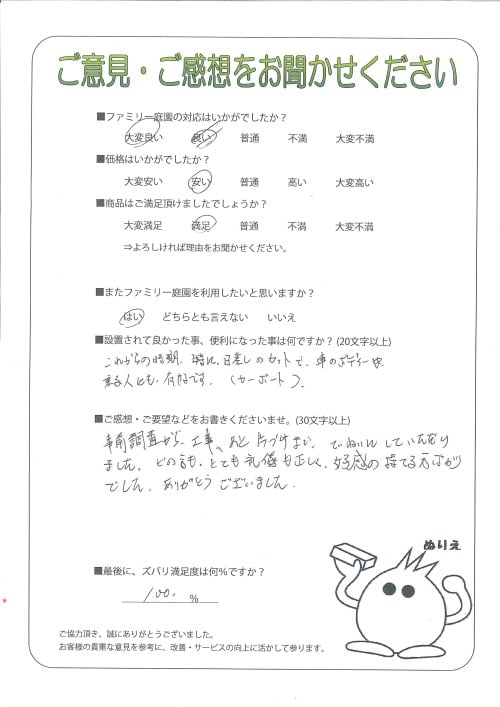 ご意見・ご感想をお聞かせください
■ファミリー庭園の対応はいかがでしたか？
大変良い 良い 普通 不満 大変不満
■価格はいかがでしたか？
大変安い 安い 普通 高い 大変高い
■商品はご満足頂けましたでしょうか？
大変満足 満足 普通 不満 大変不満
⇒よろしければ理由をお聞かせください。
■またファミリー庭園を利用したいと思いますか？
はい どちらとも言えない いいえ
■設置されて良かった事、便利になった事は何ですか？(20文字以上)
これからの時期、特に、日差しのカットで、車のボディーや
人にも、有好です。(カーポート)。
■ご感想・ご要望などをお書きくださいませ。(30文字以上)
事前調査から、工事、あと片づけまで、ていねいにしていただき
ました。どの方も、とても礼儀も正しく、好感の持てる方ばかり
でした。ありがとうございました。
ぬりえ
■最後に、ズバリ満足度は何%ですか？
100. %
ご協力頂き、誠にありがとうございました。
お客様の貴重な意見を参考に、改善・サービスの向上に活かして参ります。